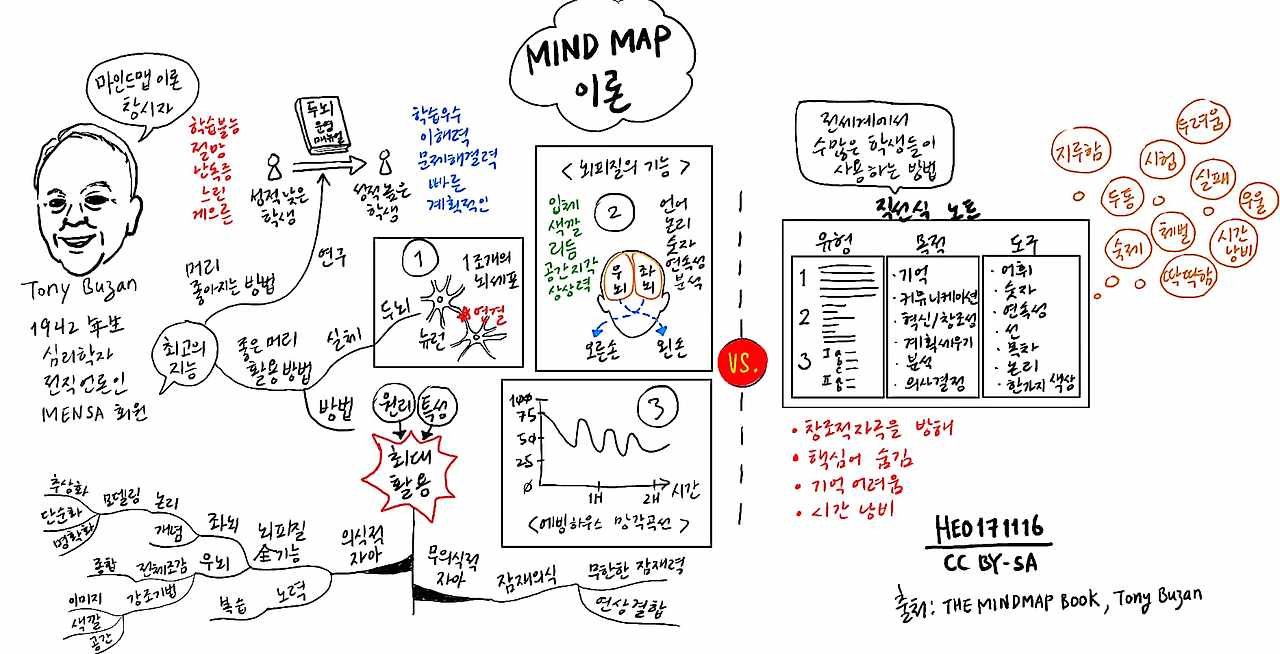 MIND MAP
이론
마인드맵 이론
창시자
Tony Buzan
1942 年生
심리학자
전직 언론인
MENSA 회원
학습불능
절망
난독증
느린
게으른
두뇌
운영
매뉴얼
성적 낮은
학생
성적 높은
학생
학습우수
이해력
문제해결력
빠른
계획적인
머리
좋아지는 방법
연구
최고의
지능
좋은 머리
활용방법
실체
방법
1
1조개의
뇌세포
두뇌
뉴런
연결
<뇌피질의 기능>
2
입체
색깔
리듬
공간지각
상상력
언어
논리
숫자
연속성
분석
우뇌
좌뇌
오른손
왼손
3
100
75
50
25
0
1H
2H
시간
<에빙하우스 망각곡선>
원리
특성
최대
활용
의식적
자아
뇌피질
全기능
좌뇌
논리
모델링
추상화
단순화
명확화
개념
우뇌
전체조감
종합
강조기법
이미지
색깔
공간
노력
복습
무의식적
자아
잠재의식
무한한 잠재력
연상결합
VS.
전세계에서
수많은 학생들이
사용하는 방법
직선식 노트
유형
목적
도구
1
2
3
· 기억
· 커뮤니케이션
· 혁신/창조성
· 계획세우기
· 분석
· 의사결정
· 어휘
· 숫자
· 연속성
· 선
· 목차
· 논리
· 한가지 색상
지루함
시험
두려움
두통
실패
우울
숙제
체벌
시간
낭비
딱딱함
• 창조적자극을 방해
• 핵심어 숨김
• 기억 어려움
• 시간 낭비
HEO171116
CC BY-SA
출처: THE MINDMAP BOOK, Tony Buzan